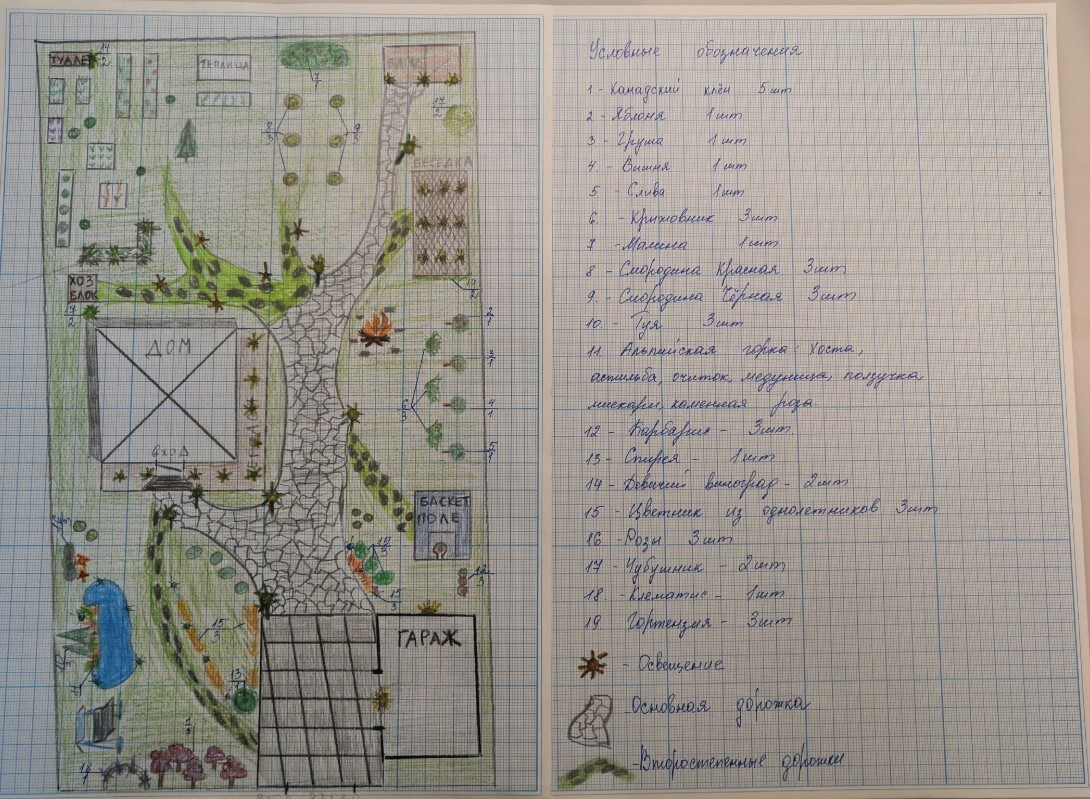 ТУАЛЕ
14/2
ТЕПЛИЦА
7
БАНЯ
17/2
8/3
9/3
БЕСЕДКА
ХОЗ
БЛОК
14/2
17/2
ДОМ
2/1
3/1
6/3
4/1
5/1
ВХОД
БАСКЕТ
ПОЛЕ
19/3
15/3
12/3
ГАРАЖ
15/3
13/1
11
1/5
Условные обозначения
1 - Канадский клён 5 шт
2 - Яблоня 1 шт
3 - Груша 1 шт
4 - Вишня 1 шт
5 - Слива 1 шт
6. - Крыжовник 3 шт
7 - Малина 1 шт
8 - Смородина Красная 3 шт
9. - Смородина Чёрная 3 шт
10. - Туя 3 шт
11. Альпийская горка: Хоста,
астильба, очиток, медуница, ползучка
мискари, каменная роза.
12 - Барбарис - 3 шт.
13 - Спирея - 1 шт
14 - Девичий виноград - 2 шт
15 - Цветник из однолетников 3 шт
16 - Розы 3 шт
17 - Чубушник - 2 шт
18. - Клематис - 1 шт
19. Гортензия - 3 шт
- Освещение
- Основная дорожка
- Второстепенные дорожки